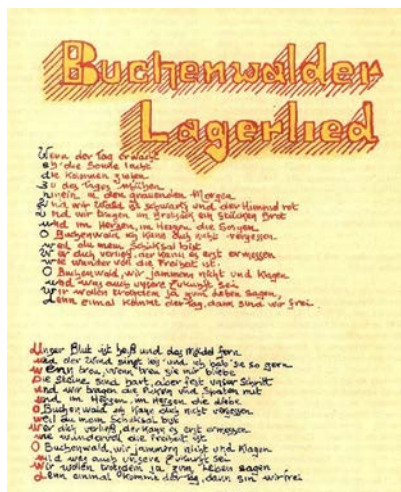 Buchenwalder
Lagerlied
Wenn der Tag erwacht
eh' die Sonne lacht
die Kolonnen ziehen
zu des Tages Mühen
hinein in den grauenden Morgen
Und der Wald ist schwarz und der Himmel rot
und wir tragen im Brotsack ein Stückchen Brot
und im Herzen, im Herzen die Sorgen
O Buchenwald ich kann dich nicht vergessen
weil du mein Schiksal bist
Wer dich verließ, der kann es erst ermessen
wie wundervoll die Freiheit ist.
O Buchenwald, wir jammern nicht und klagen
und was auch unsere Zukunft sei
Wir wollen trotzdem ja zum Leben sagen,
Denn einmal kommt der Tag, dann sind wir frei.
Unser Blut ist heiß und das Mädel fern
und der Wind singt leis' und ich hab' sie so gern
wenn treu, wenn treu sie mir bliebe
Die Steine sind hart, aber fest unser Schritt
und wir tragen die Picken und Spaten mit
und im Herzen, im Herzen die Liebe
O, Buchenwald ich kann dich nicht vergessen
weil du mein Schiksal bist
wer dich verließ, der kann es erst ermessen
wie wundervoll die Freiheit ist.
O Buchenwald, wir jammern nicht und klagen
und was auch unsere Zukunft sei
wir wollen trotzdem ja zum Leben sagen
Denn einmal kommt der Tag, dann sin wir frei